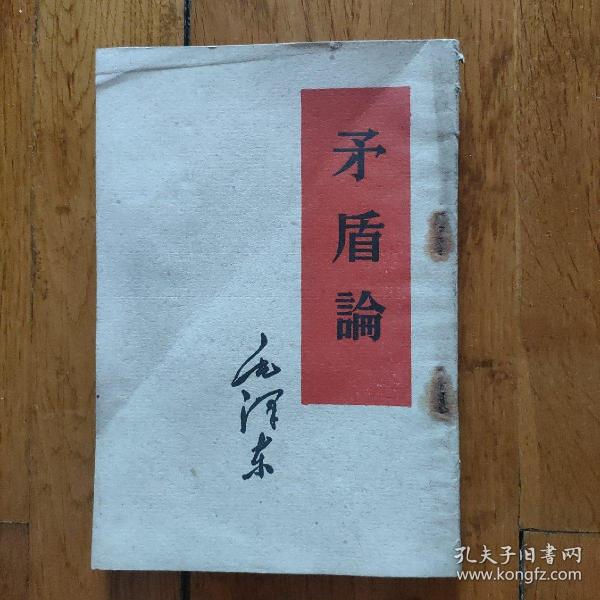 矛盾論
毛泽东
孔夫子旧書网
www.kongfz.com